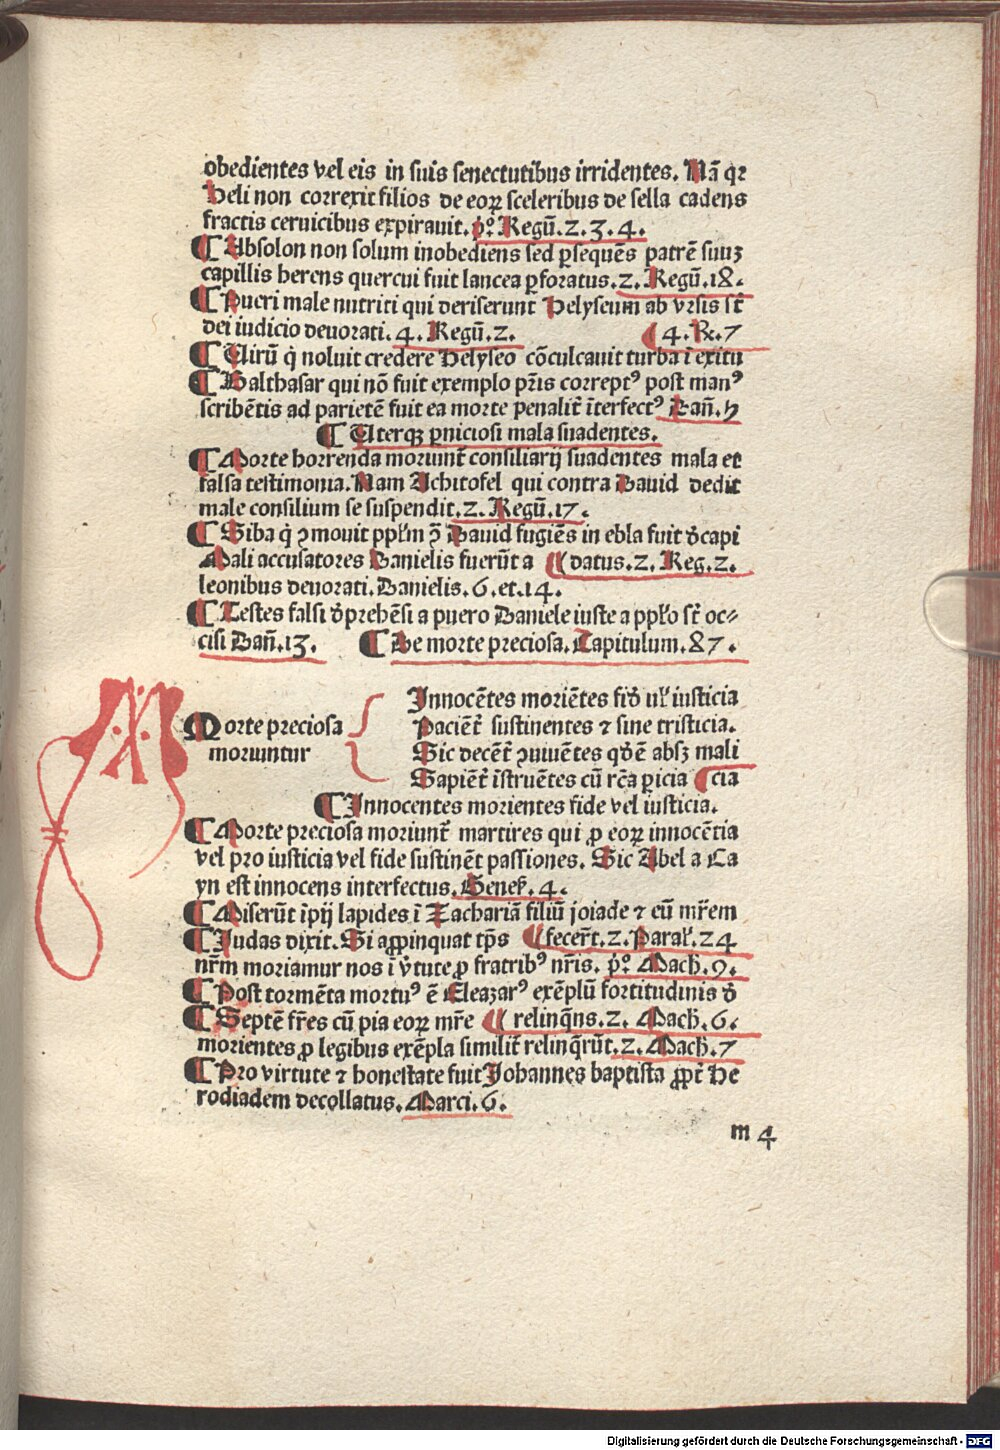 obedientes vel eis in suis senectutibus irridentes. Nā qꝛ
Heli non correxit filios de eoꝝ sceleribus de sella cadens
fractis ceruicibus expirauit. pͦ. Regū. 2. 3. 4.
¶ Absolon non solum inobediens sed ꝑsequēs patrē suuꝫ
capillis herens quercui fuit lancea ꝑforatus. 2. Regū. 18.
¶ Pueri male nutriti qui deriserunt Helyseum ab vrsis st̄
dei iudicio deuorati. 4. Regū. 2. ⸿ 4. Rͤ. 7
¶ Uirū q̇ noluit credere Helyseo cōculcauit turba ī exitu
¶ Balthasar qui nō fuit exemplo pr̄is correptꝰ post manꝰ
scribētis ad parietē fuit ea morte penalit̄ īterfectꝰ Dan̄. 5
¶ Uterqꝫ ꝑniciosi mala suadentes.
¶ Morte horrenda moriunt̄ consiliarij suadentes mala et
falsa testimonia. Nam Achitofel qui contra Dauid dedit
male consilium se suspendit. 2. Regū. 17.
¶ Siba q̇ ꝯmouit ppl̄m ꝯ̄ Dauid fugiēs in ebla fuit d̄capi
Mali accusatores Danielis fuerūt a ⸿ datus. 2. Reg. 2.
leonibus deuorati. Danielis. 6. et. 14.
¶ Testes falsi d̄prehēsi a puero Daniele iuste a ppl̄o st̄ oc⸗
cisi Dan̄. 13. ¶ De morte preciosa. Capitulum. 87.
Morte preciosa
moriuntur
Innocētes moriētes fid̄ ul̄ iusticia
Paciēt̄ sustinentes ⁊ sine tristicia.
Sic decēt̄ ꝯuiuētes qd̄ē absꝫ mali
Sapiēt̄ īstruētes cū rc̄a ꝑicia ⸿ cia
¶ Innocentes morientes fide vel iusticia.
¶ Morte preciosa moriunt̄ martires qui ꝓ eoꝝ innocētia
vel pro iusticia vel fide sustinēt passiones. Sic Abel a Ca
yn est innocens interfectus. Genes̄. 4.
¶ Miserūt īpij lapides ī Zachariā filiū joiade ⁊ eū mr̄em
¶ Judas dixit. Si aꝓpinquat tp̄s ⸿ fecer̄t. 2. Paral̄. 24
nr̄m moriamur nos ī v̄tute ꝓ fratribꝰ nr̄is. pͦ. Mach. 9.
¶ Post tormēta mortuꝰ ē Eleazarꝰ exēplū fortitudinis d̄
¶ Septē fr̄es cū pia eoꝝ mr̄e ⸿ relinq̄ns. 2. Mach. 6.
morientes ꝓ legibus exēpla similit̄ relinq̄rūt. 2. Mach. 7
¶ Pro virtute ⁊ honestate fuit Johannes baptista ꝓpt̄ He
rodiadem decollatus. Marci. 6.
m 4
Digitalisierung gefördert durch die Deutsche Forschungsgemeinschaft - DFG